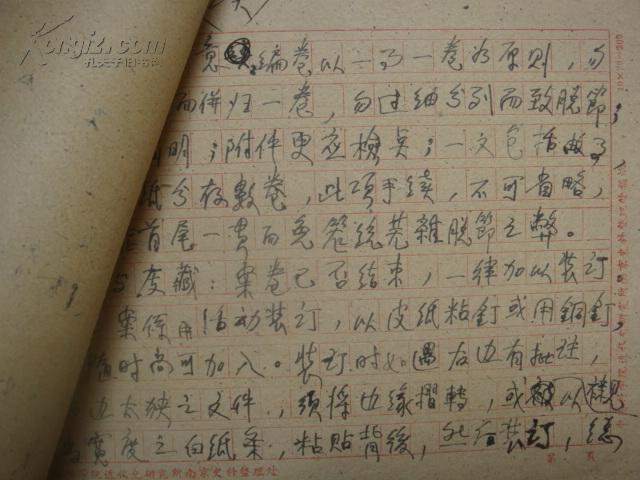 Kongfz.com
孔夫子旧书网
意 編卷以一了一卷为原则，勿
而併归一卷，勿过细分列而致脱節；
明；附件更应檢点；一文包括数了
纸分存數卷，此項手续，不可省略，
首尾一貫而免笼统茏雜脱節之弊。
庋藏：案卷已否结束，一律加以装订。
案係用活动装订，以皮纸粘釘或用銅釘，
随时尚可加入。装订时如遇左边有批註，
边太狭之文件，須將边缘摺轉，或 以襯
寬度之白纸条，粘贴背後，然后装订，
院近代史研究所南京史料整理处
第 頁